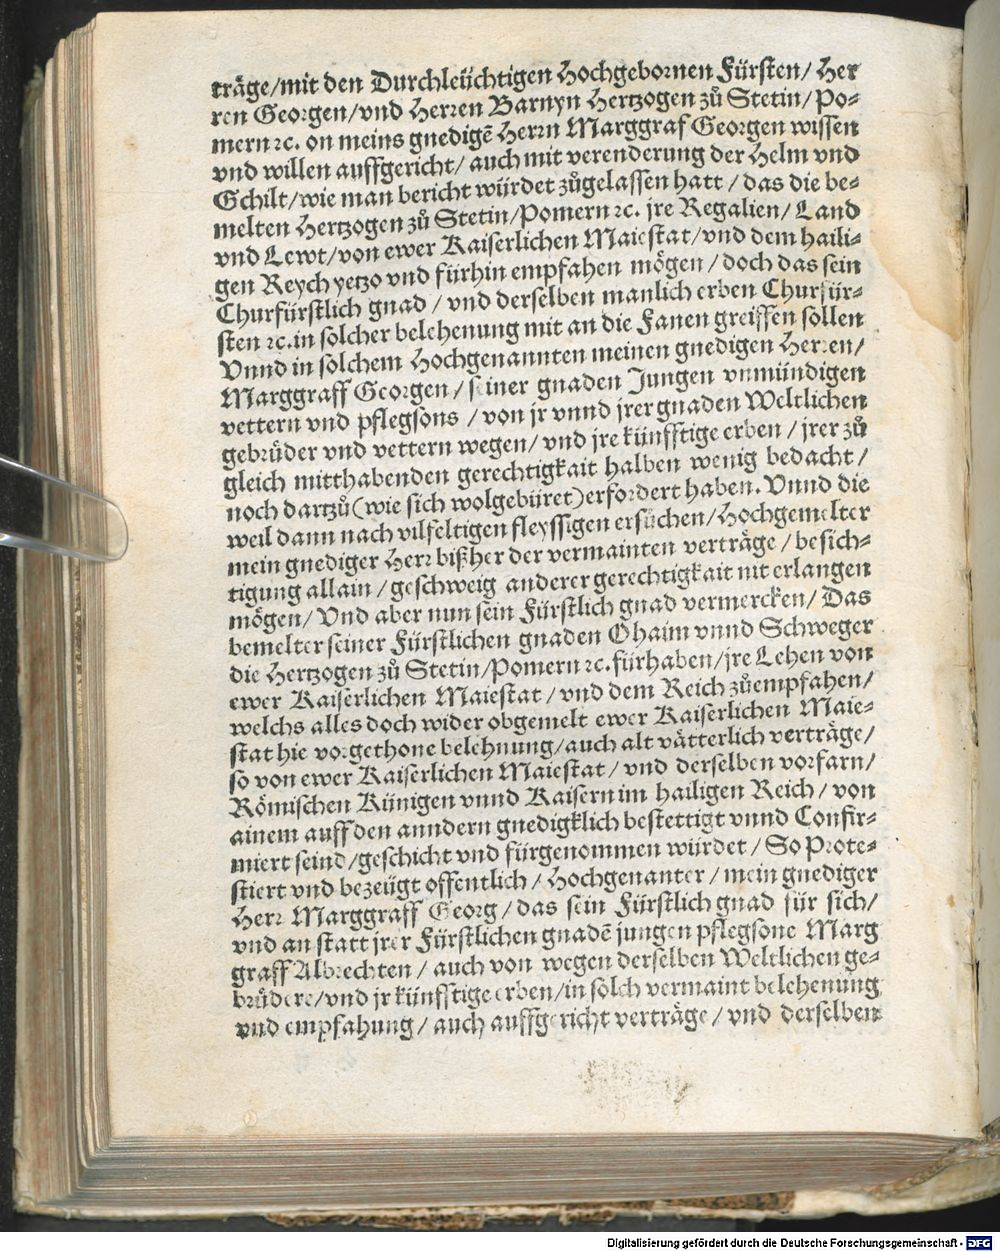 träge/mit den Durchleüchtigen Hochgebornen Fürsten/ Her
ren Georgen/vnd Herren Barnyn Hertzogen zů Stetin/Po⸗
mern ꝛc. on meins gnedigẽ Herrn Marggraf Georgen wissen
vnd willen auffgericht/ auch mit verenderung der Helm vnd
Schilt/wie man bericht würdet zůgelassen hatt / das die be⸗
melten Hertzogen zů Stetin/Pomern ꝛc. jre Regalien/ Land
vnd Lewt/von ewer Kaiserlichen Maiestat/vnd dem haili⸗
gen Reych yetzo vnd fürhin empfahen mögen / doch das sein
Churfürstlich gnad / vnd derselben manlich erben Churfür⸗
sten ꝛc. in solcher belehenung mit an die Fanen greiffen sollen
Vnnd in solchem Hochgenannten meinen gnedigen Herren/
Marggraff Georgen / seiner gnaden Jungen vnmündigen
vettern vnd pflegsons / von jr vnnd jrer gnaden Weltlichen
gebrüder vnd vettern wegen/ vnd jre künfftige erben / jrer zů
gleich mitthabenden gerechtigkait halben wenig bedacht /
noch dartzů (wie sich wolgebüret) erfordert haben. Vnnd die
weil dann nach vilfeltigen fleyssigen ersůchen/ Hochgemelter
mein gnediger Herr bißher der vermainten verträge / besich⸗
tigung allain / geschweig anderer gerechtigkait nit erlangen
mögen/ Vnd aber nun sein Fürstlich gnad vermercken/ Das
bemelter seiner Fürstlichen gnaden Ohaim vnnd Schweger
die Hertzogen zů Stetin/Pomern ꝛc. fürhaben/jre Lehen von
ewer Kaiserlichen Maiestat / vnd dem Reich zůempfahen/
welchs alles doch wider obgemelt ewer Kaiserlichen Maie⸗
stat hie vorgethone belehnung/auch alt vätterlich verträge/
so von ewer Kaiserlichen Maiestat / vnd derselben vorfarn/
Römischen Künigen vnnd Kaisern im hailigen Reich / von
ainem auff den anndern gnedigklich bestettigt vnnd Confir⸗
miert seind/geschicht vnd fürgenommen würdet / So Prote⸗
stiert vnd bezeügt offentlich / Hochgenanter / mein gnediger
Herr Marggraff Georg / das sein Fürstlich gnad für sich/
vnd an statt jrer Fürstlichen gnadẽ jungen pflegsone Marg
graff Albrechten / auch von wegen derselben Weltlichen ge⸗
brüdere/vnd jr künfftige erben/in solch vermaint belehenung
vnd empfahung / auch auffgericht verträge / vnd derselben
Digitalisierung gefördert durch die Deutsche Forschungsgemeinschaft - DFG